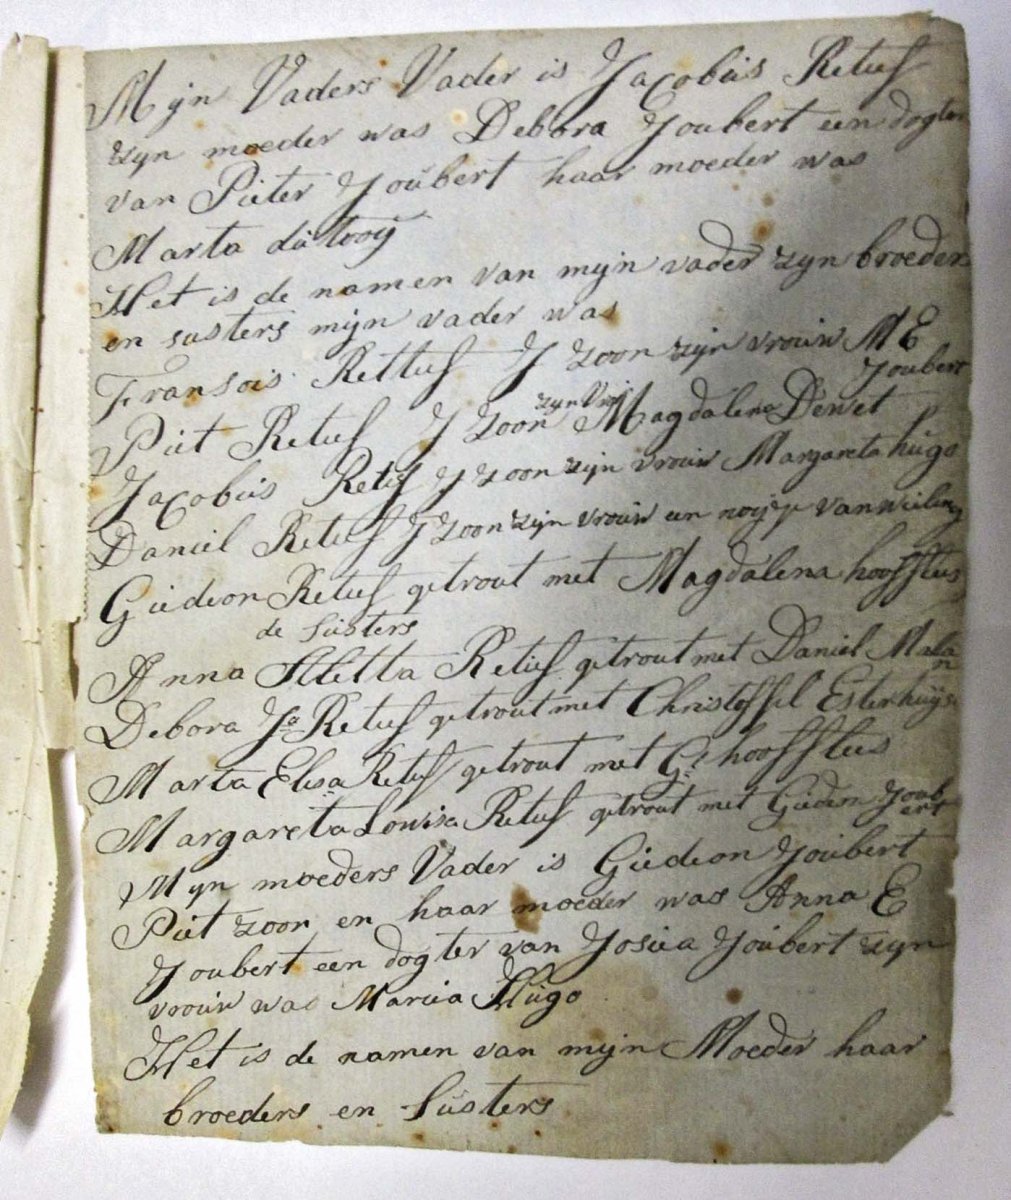 Mijn Vaders Vader is Jacobús Retief
zijn moeder was Debora Joubert een dogter
van Pieter Joúbert haar moeder was
Marta dú tooij
Het is de namen van mijn vader zijn broeders
en susters mijn vader was
Fransois Retief J zoon zijn vrouw M E
Joubert
Piet Retief J zoon zijn Vrou Magdalena Dewet
Jacobús Retief J zoon zijn vrouw Margareta húgo
Daniel Retief J zoon zijn vrouw een nojtje van
Giedeon Retief getrout met Magdalena hooffلees
de Sústers
Anna Aletta Retief getrout met Daniel Malan
Debora Ja Retief getrout met Christoffel Esterhúijse
Marta Elisa Retief getrout met G. hoofflees
Margareta Lowisa Retief getrout met Gideon Joubert
Mijn moeders Vader is Giedeon Joúbert
Piet zoon en haar moeder was Anna E
Joubert een dogter van Josúa Joúbert zijn
vrouw was Maria Húgo
Het is de namen van mijn Moeder haar
broeders en Sústers